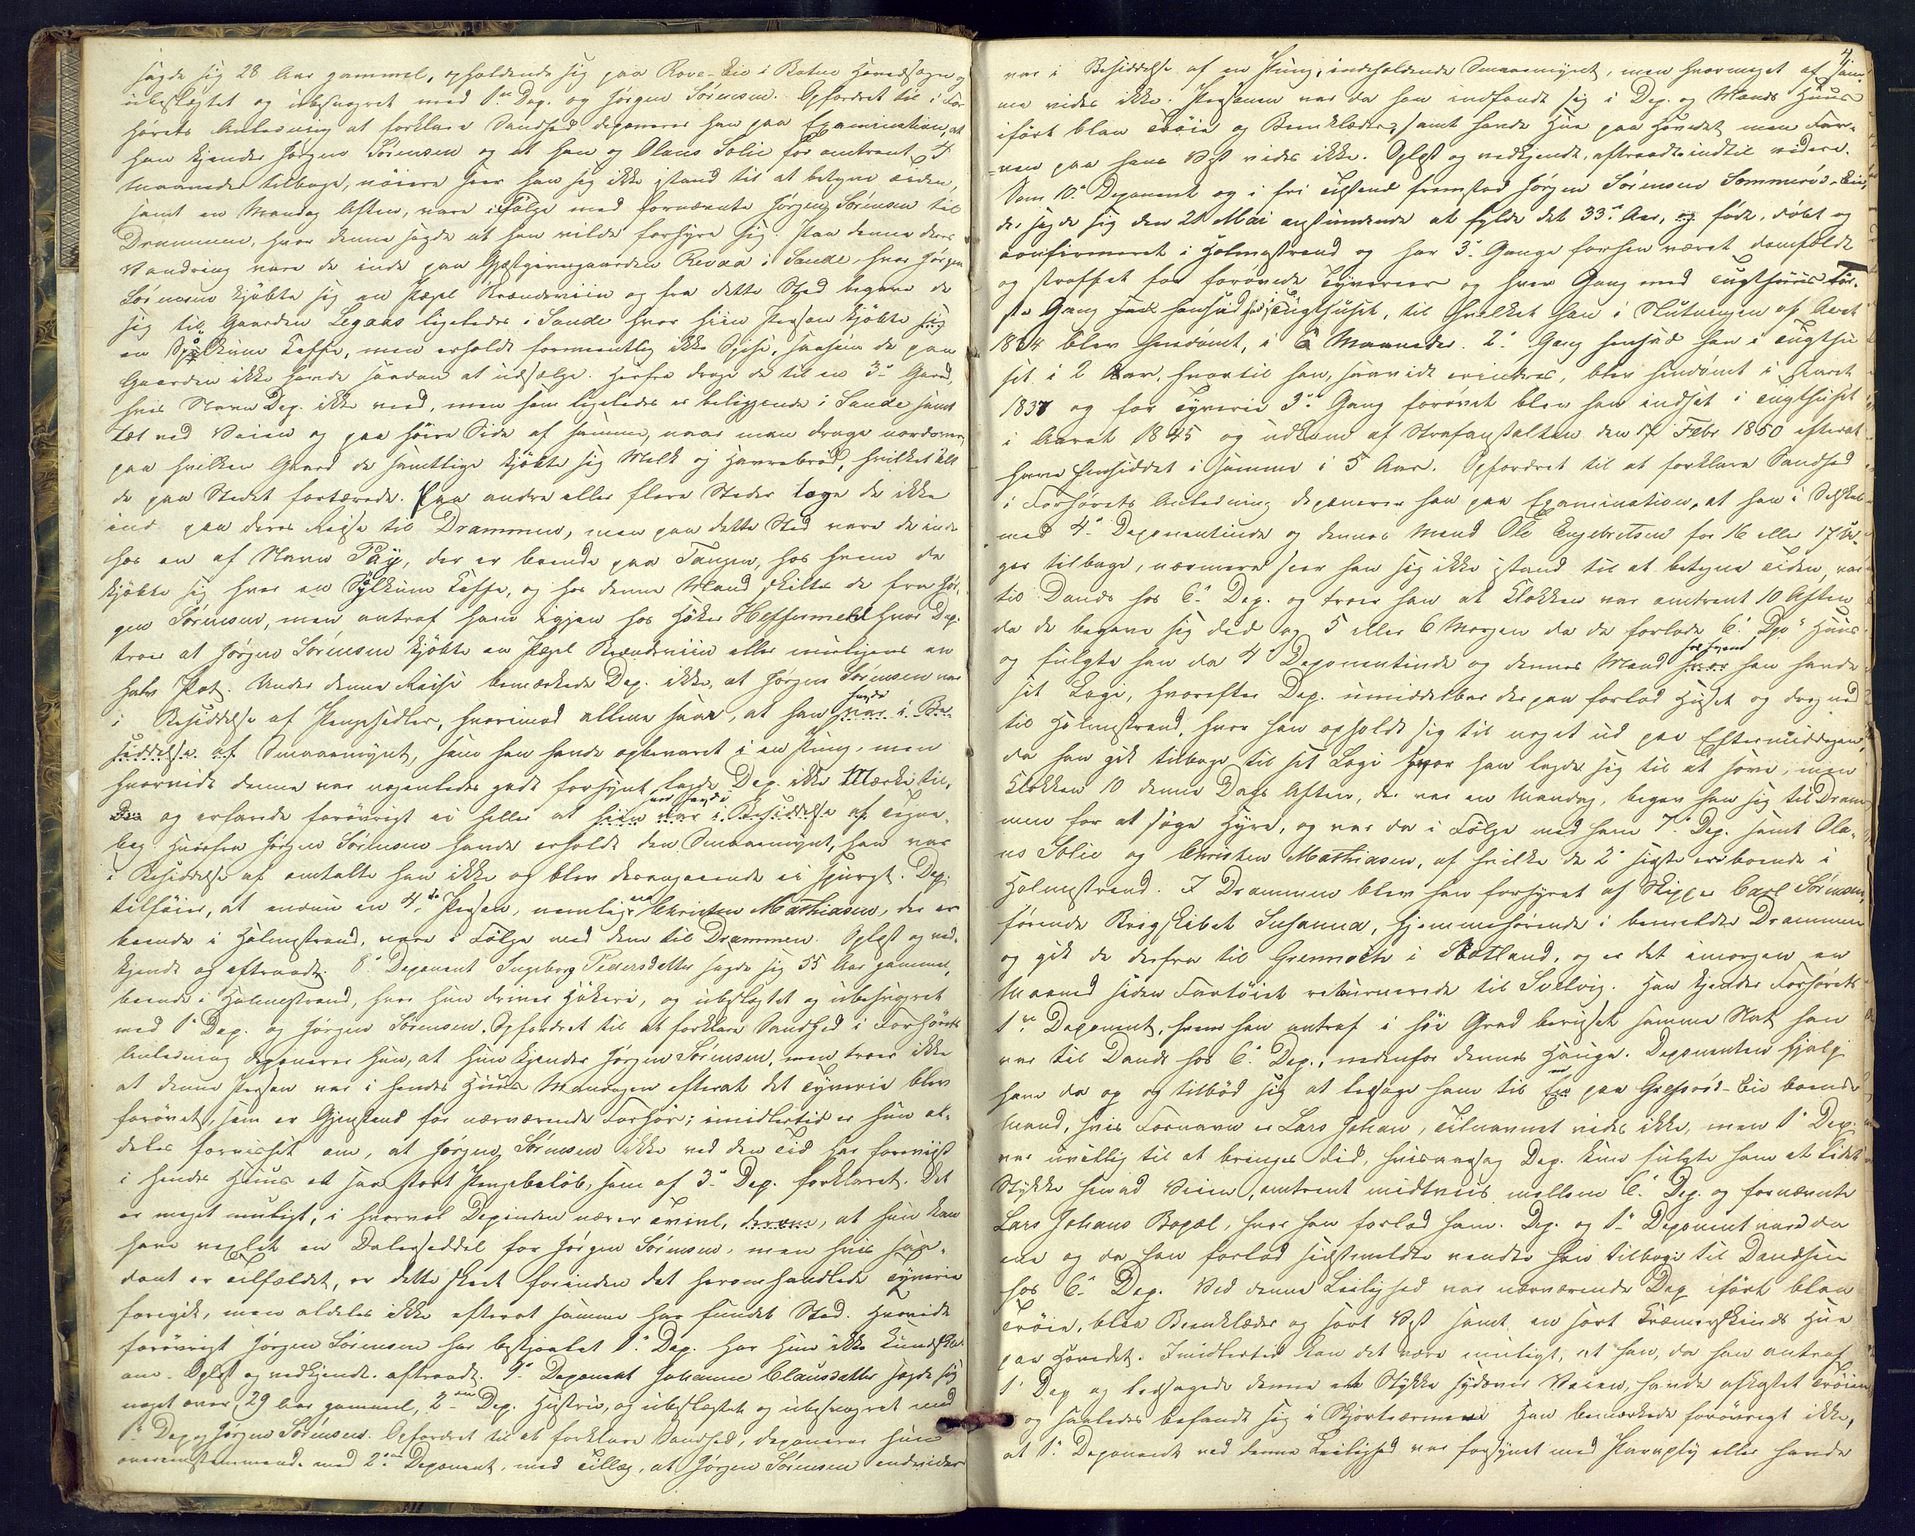 sagde sig 28 Aar gammel, opholdende sig paa Rove-Eie i Botne Hovedsogn og
ubeslægtet og ubesvogret med 1ste Dep. og Jørgen Sørensen. Opfordret til i For-
hørets Anledning at forklare Sandhed deponerer han paa Examination, at
han kjender Jørgen Sørensen og at han og Olaus Solie for omtrent 4
Maaneder tilbage, nøiere seer han sig ikke istand til at betegne Tiden,
samt en Mandag Aften, vare i Følge med fornævnte Jørgen Sørensen til
Drammen, hvor denne sagde at han vilde forhyre sig. Paa denne deres
Vandring vare de inde paa Gjæstgivergaarden Revaa i Sande, hvor Jørgen
Sørensen kjøbte sig en Pægel Brændeviin og fra dette Sted begave de
sig til Gaarden Legaas ligeledes i Sande hvor hiin Person kjøbte sig
en Spølkum Caffe, men erholdt formeentlig ikke Spise, saasom de paa
Gaarden ikke havde saadan at udsælge. Herfra droge de til en 3die Gaard,
hvis Navn Dep. ikke veed, men som ligeledes er beliggende i Sande samt
tæt ved Veien og paa høire Side af samme, naar man drage nordover,
paa hvilken Gaard de samtlige kjøbte sig Melk og Havrebrød, hvilket alt
de paa Stedet fortærede. Paa andre eller flere Steder toge de ikke
ind paa deres Reise til Drammen, men paa dette Sted vare de inde
hos en af Navn Pay, der er boende paa Tangen, hos hvem de
kjøbte sig hver en Spølkum Caffe, og hos denne Mand skiltes de fra Jør-
gen Sørensen, men antraf ham igjen hos Høker Heffermehl hvor Dep.
troer at Jørgen Sørensen kjøbte en Pægel Brændeviin eller muligens en
halv Pot. Under denne Reise bemærkede Dep. ikke, at Jørgen Sørensen var
i Besiddelse af Pengesedler, hvorimod allene saae, at han havde var i Be-
siddelse af Smaamynt, som han havde opbevaret i en Pung, men
hvorvidt denne var nogenledes godt forsynt, lagde Dep. ikke Mærke til,
og erfarede forøvrigt ei heller at hiin var i Besiddelse af Tegne-
bog. Hvorfra Jørgen Sørensen havde erholdt den Smaamynt, han var
i Besiddelse af omtalte han ikke og blev derangaaende ei spurgt. Dep.
tilføier, at endnu en 4de Person, nemlig Christen Mathiasen, der er
boende i Holmestrand, vare i Følge med dem til Drammen. Oplæst og ved-
kjendt og aftraadt. 8de Deponent Ingeborg Pedersdatter sagde sig 55 Aar gammel,
boende i Holmestrand, hvor hun driver Høkeri, og ubeslægtet og ubesvogret
med 1ste Dep. og Jørgen Sørensen. Opfordret til at forklare Sandhed i Forhørets
Anledning deponerer hun, at hun kjender Jørgen Sørensen, men troer ikke
at denne Person var i hendes Huus Mandagen efterat det Tyverie blev
forøvet, som er Gjenstand for nærværende Forhør; imidlertid er hun al-
deles forvisset om, at Jørgen Sørensen ikke ved den Tid har foreviist
i hendes Huus et saa stort Pengebeløb, som af 3die Dep. forklaret. Det
er meget muligt, i hvorvel Depinden nærer Tvivl, derom, at hun kan
have vexlet en Dalerseddel for Jørgen Sørensen, men hvis saa-
dant er Tilfældet, er dette skeet forinden det heromhandlede Tyverie
foregik, men aldeles ikke efterat samme har fundet Sted. Hvorvidt
forøvrigt Jørgen Sørensen har bestjaalet 1ste Dep. har hun ikke Kundskab
om. Oplæst og vedkjendt. aftraadt. 9de Deponent Johanne Clausdatter sagde sig
noget over 29 Aar gammel, 2den Dep. Hustru, og ubeslægtet og ubesvogret med
1ste Dep. og Jørgen Sørensen. Opfordret til at forklare Sandhed, deponerer hun
overeenstemmende med 2den Deponent, med Tillæg, at Jørgen Sørensen endvidere
4
var i Besiddelse af en Pung, indeholdende Smaamynt, men hvormeget af sam-
me vides ikke. Personen var da han indfandt sig i Dep. og Mands Huus
iført blaa Trøie og Beenklæder, samt havde Hue paa Hovedet men Far-
ven paa hans Vest vides ikke. Oplæst og vedkjendt, aftraadte indtil videre.
Som 10de Deponent og i fri Tilstand fremstod Jørgen Sørensen Sommerød-Eie,
der sagde sig den 21 Mai anstundende at fylde det 33te Aar, og føde, døbt og
confirmeret i Holmestrand og har 3de Gange forhen været domfældt
og straffet for forøvede Tyverier og hver Gang med Tugthuus. Før-
ste Gang hensad han i Tugthuset, til hvilket han i Slutningen af Aaret
1834 blev hendømt, i 6 Maaneder. 2den Gang hensad han i Tugthu-
set i 2 Aar, hvortil han, saavidt erindres, blev hendømt i Aaret
1837 og for Tyverie 3die Gang forøvet blev han indsat i Tugthuset
i Aaret 1845 og udkom af Strafanstalten den 17 Febr 1850 efterat
have hensiddet i samme i 5 Aar. Opfordret til at forklare Sandhed
i Forhørets Anledning deponerer han paa Examination, at han i Selskab
med 4de Deponentinde og dennes Mand Ole Engebretsen for 16 eller 17 U-
ger tilbage, nærmere seer han sig ikke istand til at betegne Tiden, var
til Dands hos 6te Dep. og troer han at Klokken var omtrent 10 Aften
da de begave sig did og 5 eller 6 Morgen da de forlode 6te Dps Huus
og fulgte han da 4de Deponentinde og dennes Mand hos hvem han havde
sit Logi, hvorefter Dep. umiddelbar derpaa forlod Huset og drog ned
til Holmestrand, hvor han opholdt sig til noget ud paa Eftermiddagen,
da han gik tilbage til sit Logi hvor han lagde sig til at sove, men
Klokken 10 denne Dags Aften, der var en Mandag, begav han sig til Dram-
men for at søge Hyre, og var da i Følge med ham 7de Dep. samt Ola-
us Solie og Christen Mathiasen, af hvilke de 2de sidste ere boende i
Holmestrand. I Drammen blev han forhyret af Skipper Carl Sørensen,
førende Brigskibet Susanna, hjemmehørende i bemeldte Drammen
og gik de derfra til Grennock i Skotland, og er det imorgen en
Maaned siden Fartøiet returnerede til Svelvig. Han kjender Forhørets
1ste Deponent, hvem han antraf i høi Grad beruset samme Nat han
var til Dands hos 6te Dep., nedenfor dennes Hauge. Deponenten hjalp
ham da op og tilbød sig at ledsage ham til en paa Grefsrød-Eie boende
Mand, hvis Fornavn er Lars Johan, Tilnavnet vides ikke, men 1ste Dep.
var uvillig til at bringes did, hvisaarsag Dep. kun fulgte ham et lidet
Stykke henad Veien, omtrent midtveis mellem 6te Dep. og fornævnte
Lars Johans Bopæl, hvor han forlod ham. Dep. og 1ste Deponent vare da
ene og da han forlod sidstmeldte vendte han tilbage til Dandsen
hos 6te Dep. Ved denne Leilighed var nærværende Dep. iført blaa
Trøie, blaa Beenklæder og sort Vest samt en sort Kræmerskinds Hue
paa Hovedet. Imidlertid kan det være muligt, at han, da han antraf
1ste Dep og ledsagede denne et Stykke sydover Veien, havde afkastet Trøien
og saaledes befandt sig i Skjorteærmene. Han bemærkede forøvrigt ikke,
at 1ste Deponent ved denne Leilighed var forsynet med Paraply eller havde